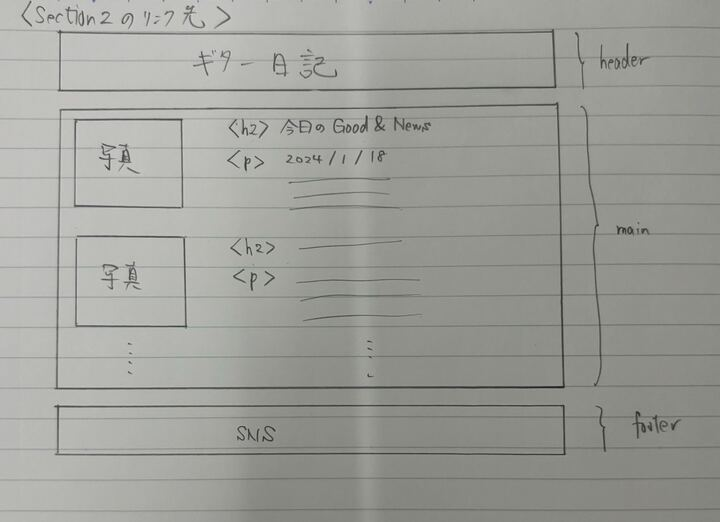 <Section2のリンク先>
ギター日記
header
写真
<h2> 今日の Good & News
<p> 2024/1/18
main
写真
<h2>
<p>
SNS
footer